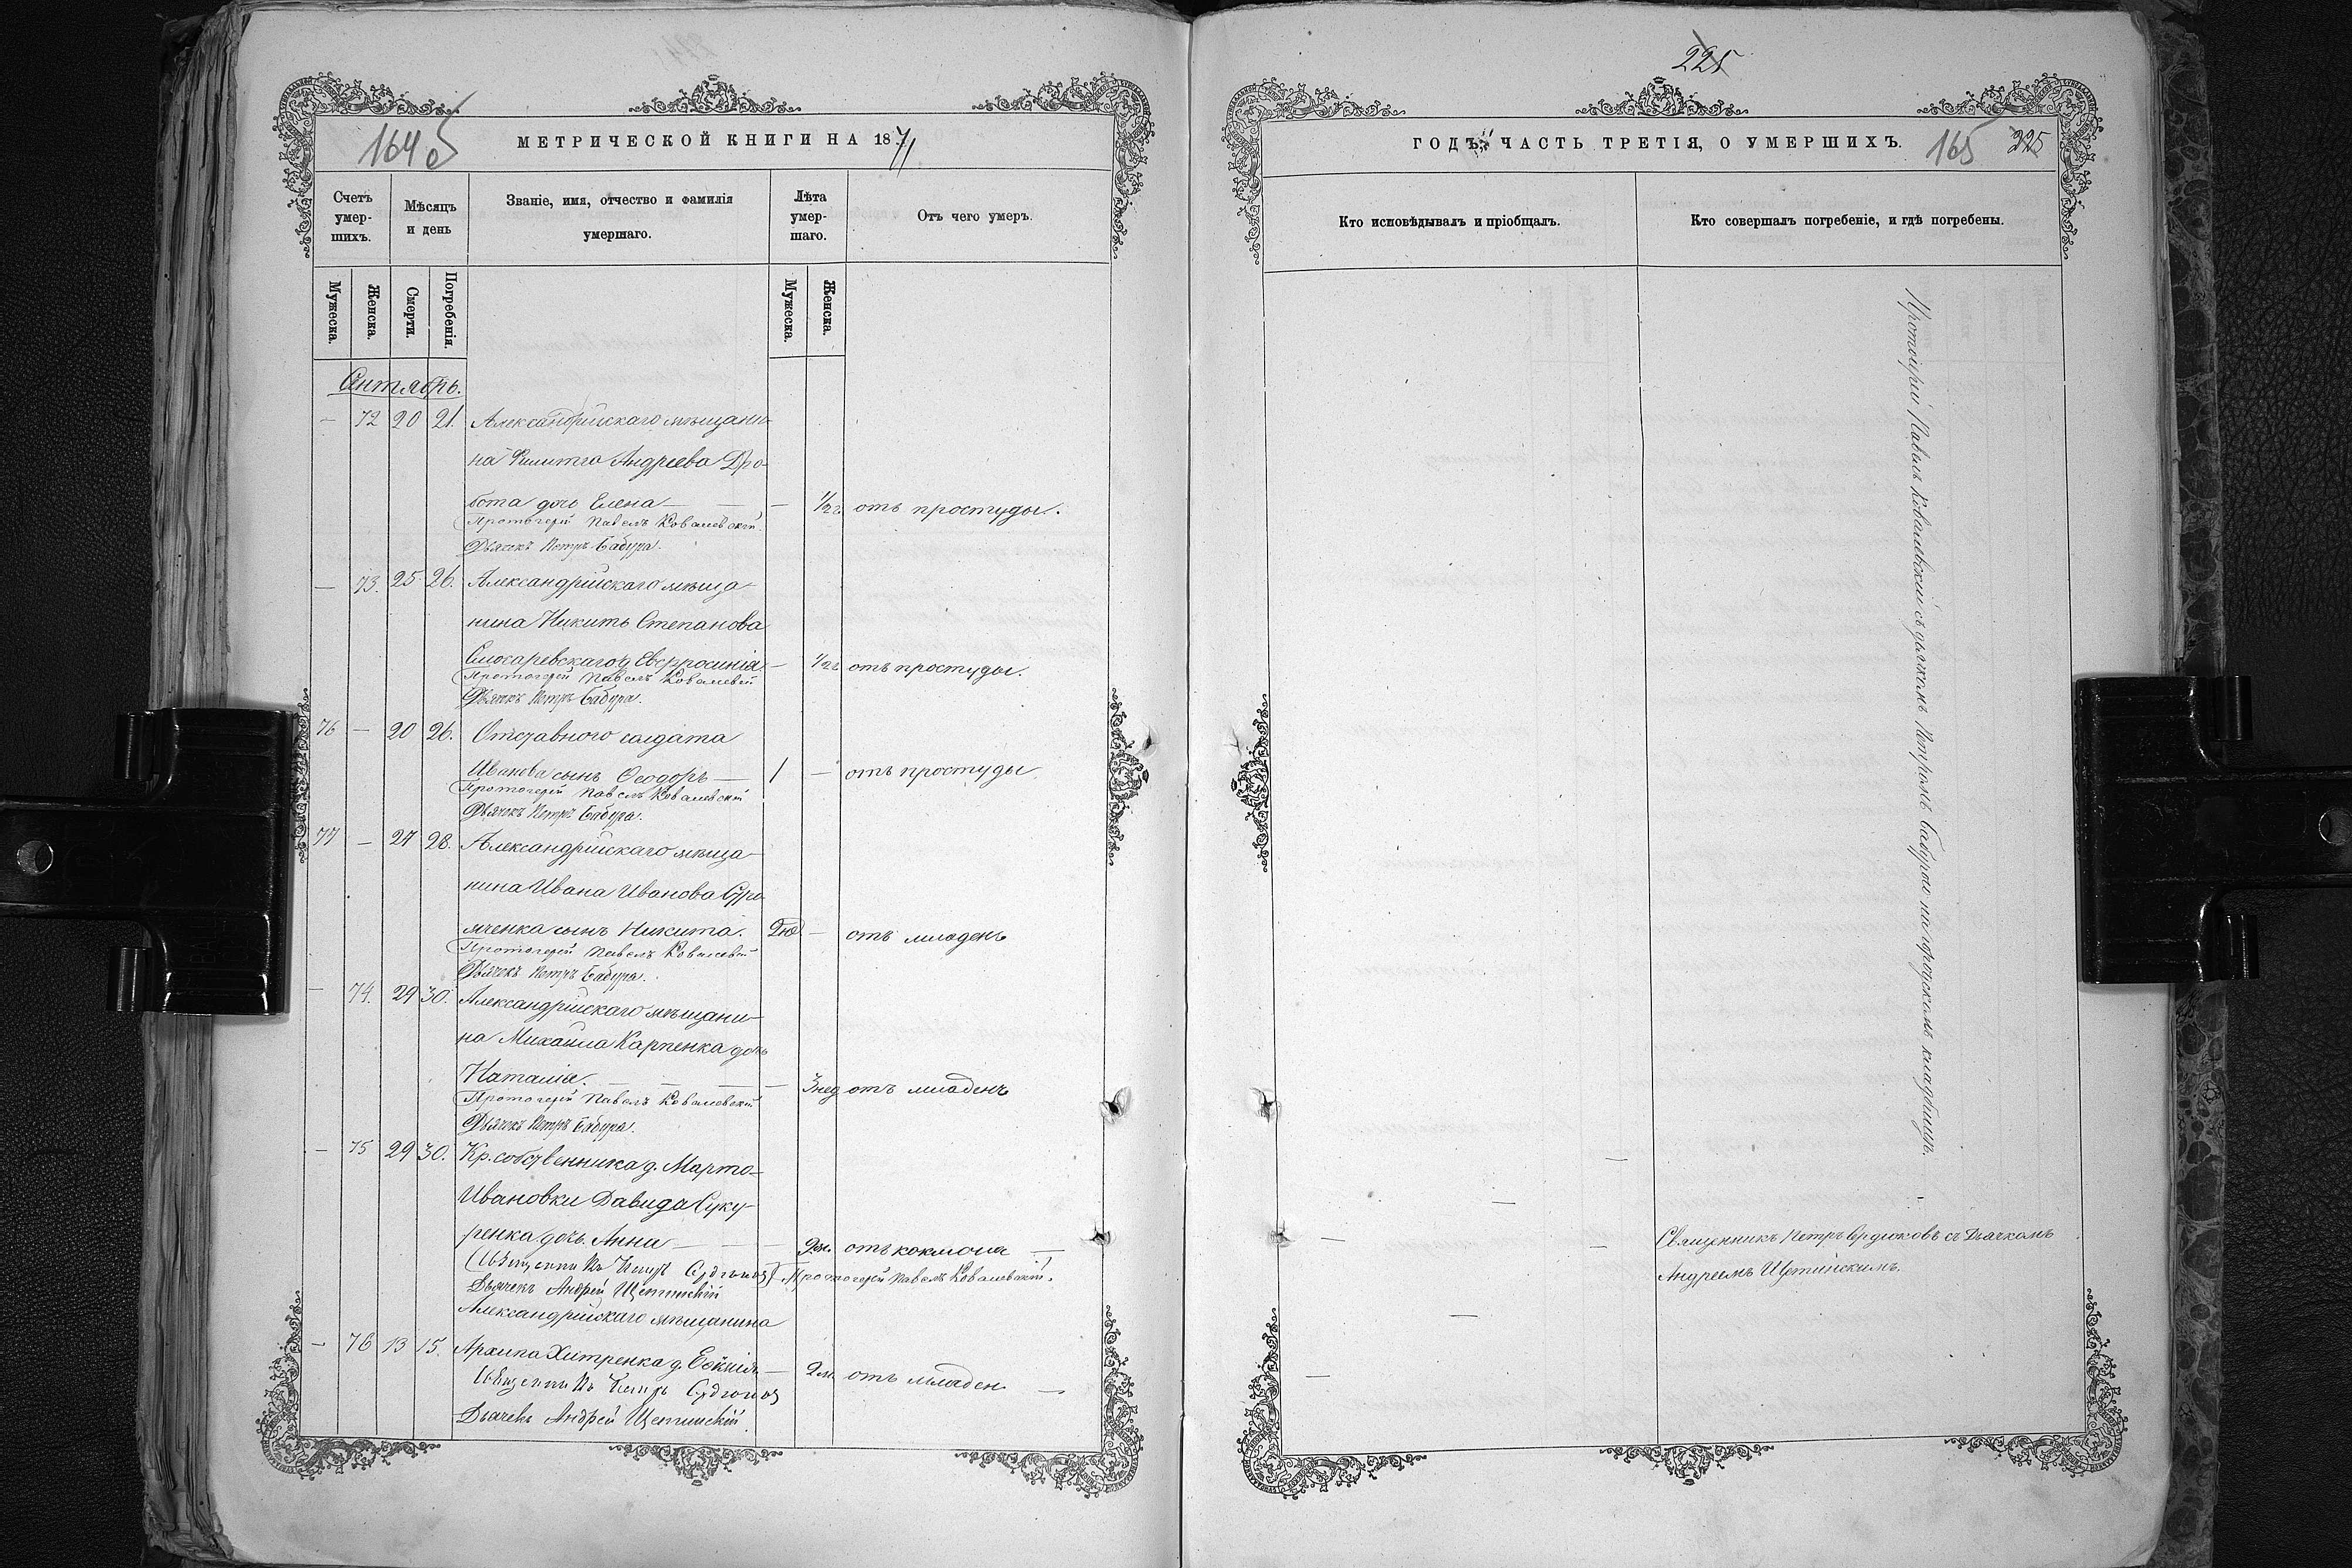 164 об
МЕТРИЧЕСКОЙ КНИГИ НА 1871
Счетъ умер-шихъ.
Мѣсяцъ и день
Званіе, имя, отчество и фамилія умершаго.
Лѣта умер-шаго.
Отъ чего умеръ.
Мужеска. Женска. Смерти. Погребенія. Мужеска. Женска.
Сентябрь.
— 72 20 21. Александрійскаго мѣщани-
на Андреева Дро-
бота дочь Елена — — — 1/2 г. отъ простуды.
Протоіерей Павелъ Ковалевскій.
Дьячекъ Петръ Бабура.
— 73. 25 26. Александрійскаго мѣща-
нина Никиты Степанова
Слюсаревскаго д. Евфросинія — 1/2 г. отъ простуды.
Протоіерей Павелъ Ковалевскій
Дьячекъ Петръ Бабура.
76 — 20 26. Отставного солдата
Иванова сынъ Ѳеодоръ — 1 — отъ простуды
Протоіерей Павелъ Ковалевскій
Дьячекъ Петръ Бабура.
77 — 27 28. Александрійскаго мѣща-
нина Ивана Иванова
сынъ Никита. — отъ младенч
Протоіерей Павелъ Ковалевскій
Дьячекъ Петръ Бабура.
— 74. 29 30. Александрійскаго мѣщани-
на Михаила Карпенка дочь
Наталія. — — — — 3 нед отъ младенч
Протоіерей Павелъ Ковалевскій
Дьячекъ Петръ Бабура.
— 75 29 30. Кр. собственника д. Марто-
Ивановки Давида Суку-
ренка дочь Анна — — — отъ коклюша —
Священникъ Петръ Сердюковъ Протоіерей Павелъ Ковалевскій.
Дьячекъ Андрей Щетинскій
Александрійскаго мѣщанина
— 76 13 15. Архипа Хитренка д. — 2 м. отъ младен —
Священникъ Петръ Сердюковъ
Дьячекъ Андрей Щетинскій.
225
ГОДЪ, ЧАСТЬ ТРЕТІЯ, О УМЕРШИХЪ.
165 225
Кто исповѣдывалъ и пріобщалъ.
Кто совершалъ погребеніе, и гдѣ погребены.
Протоіерей Павелъ Ковалевскій съ дьячкомъ Петромъ Бабурою на городскомъ кладбищѣ.
Священникъ Петръ Сердюковъ съ Дьячкомъ
Андреемъ Щетинскимъ.